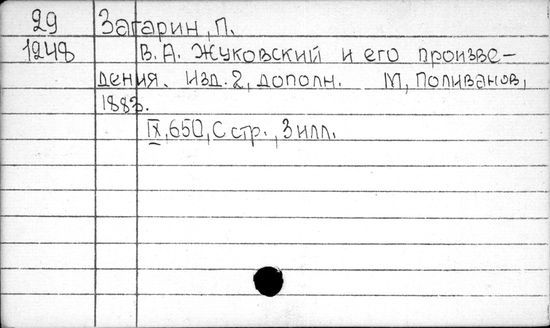 29 Загарин, П.
1248 В.А. Жуковский и его произве-
дения. Изд. 2, дополн. М, Поливанов,
1883.
IX, 650, С стр., 3 илл.